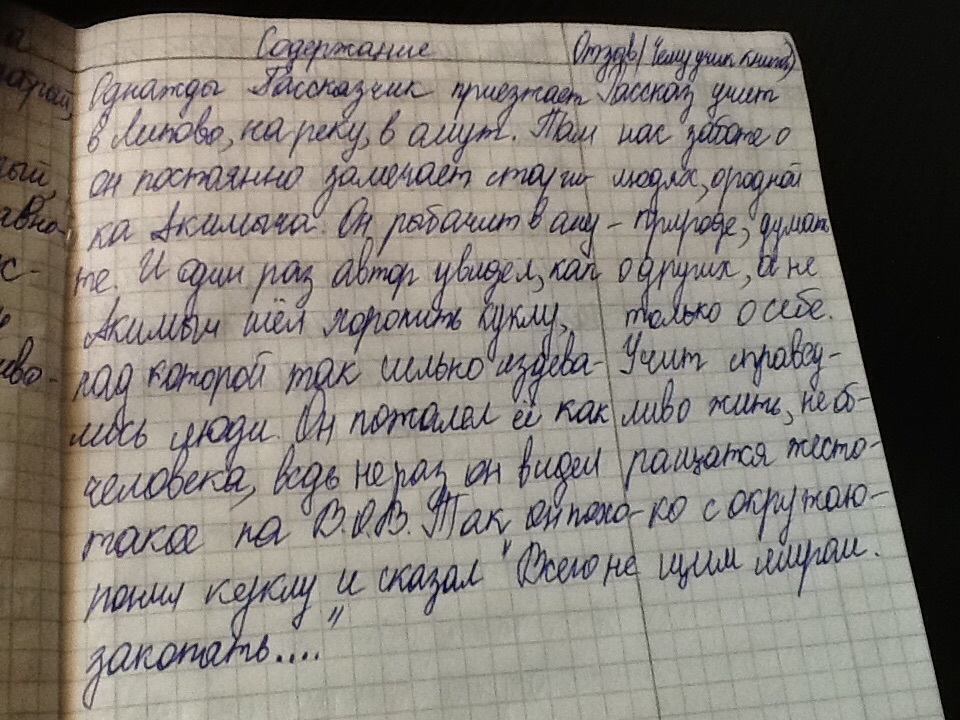 а
Содержание
Отзыв (Чему учит книга)
Однажды Рассказчик приезжает
в Липово, на реку, в омут. Там
он постоянно замечает старич-
ка Акимыча. Он рыбачит в ому-
те. И один раз автор увидел, как
Акимыч шёл хоронить куклу,
над которой так сильно издева-
лись люди. Он пожалел её как
человека, ведь не раз он видел
такое на В.О.В. Так он похо-
ронил куклу и сказал "Всего не
закопать...."
Рассказ учит
нас заботе о
людях, о родной
природе, думать
о других, а не
только о себе.
Учит справед-
ливо жить, не об-
ращатся жесто-
ко с окружаю-
щим миром.